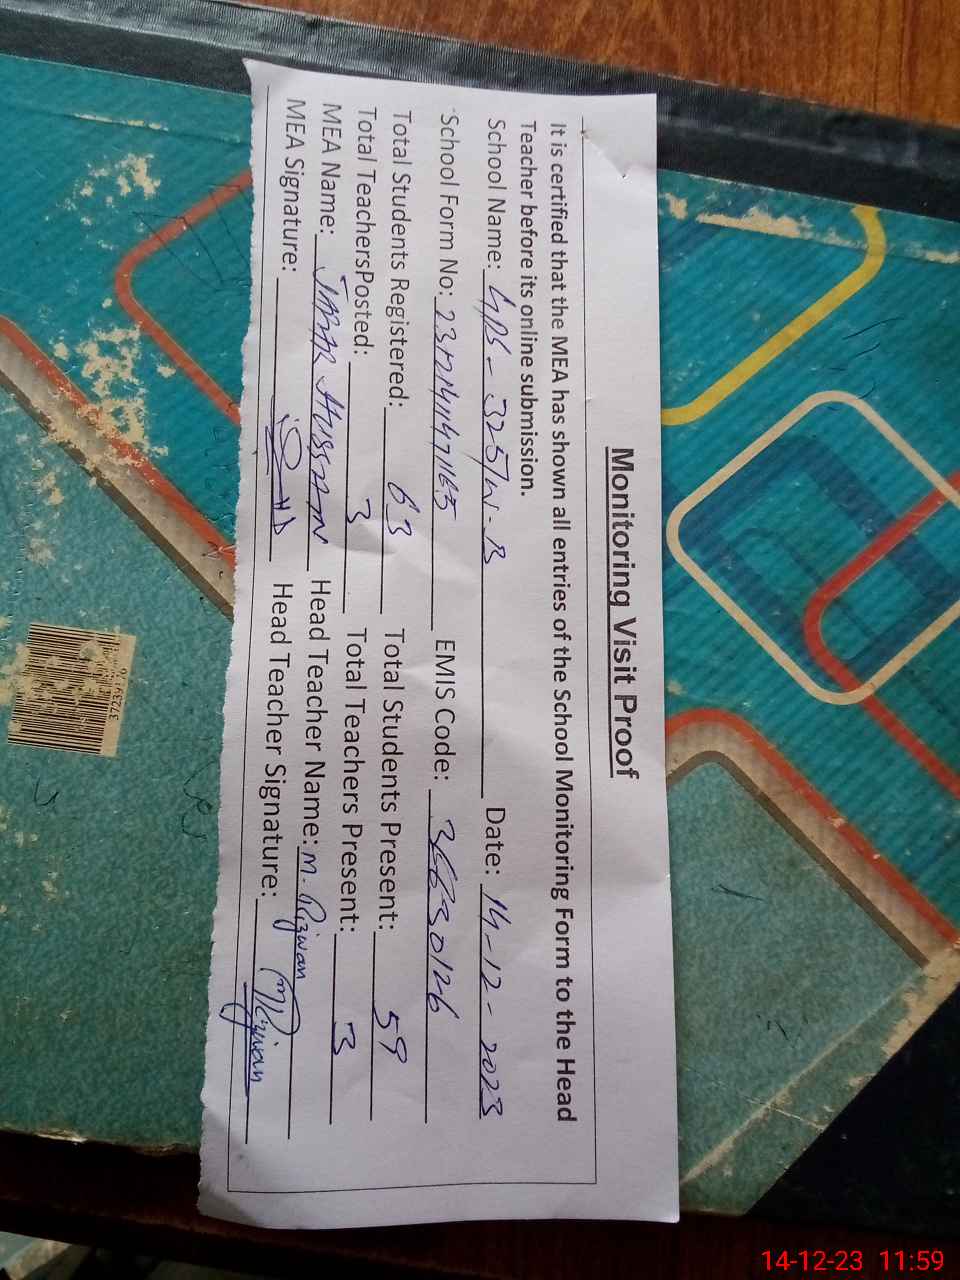 Monitoring Visit Proof
It is certified that the MEA has shown all entries of the School Monitoring Form to the Head
Teacher before its online submission.
School Name: GPS - 325/W-B Date: 14-12-2023
School Form No: EMIS Code: 36630126
Total Students Registered: 63 Total Students Present: 59
Total TeachersPosted: 3 Total Teachers Present: 3
MEA Name: JAFAR HUSSAIN Head Teacher Name: M. Rizwan
MEA Signature: Head Teacher Signature: M Rizwan
14-12-23 11:59